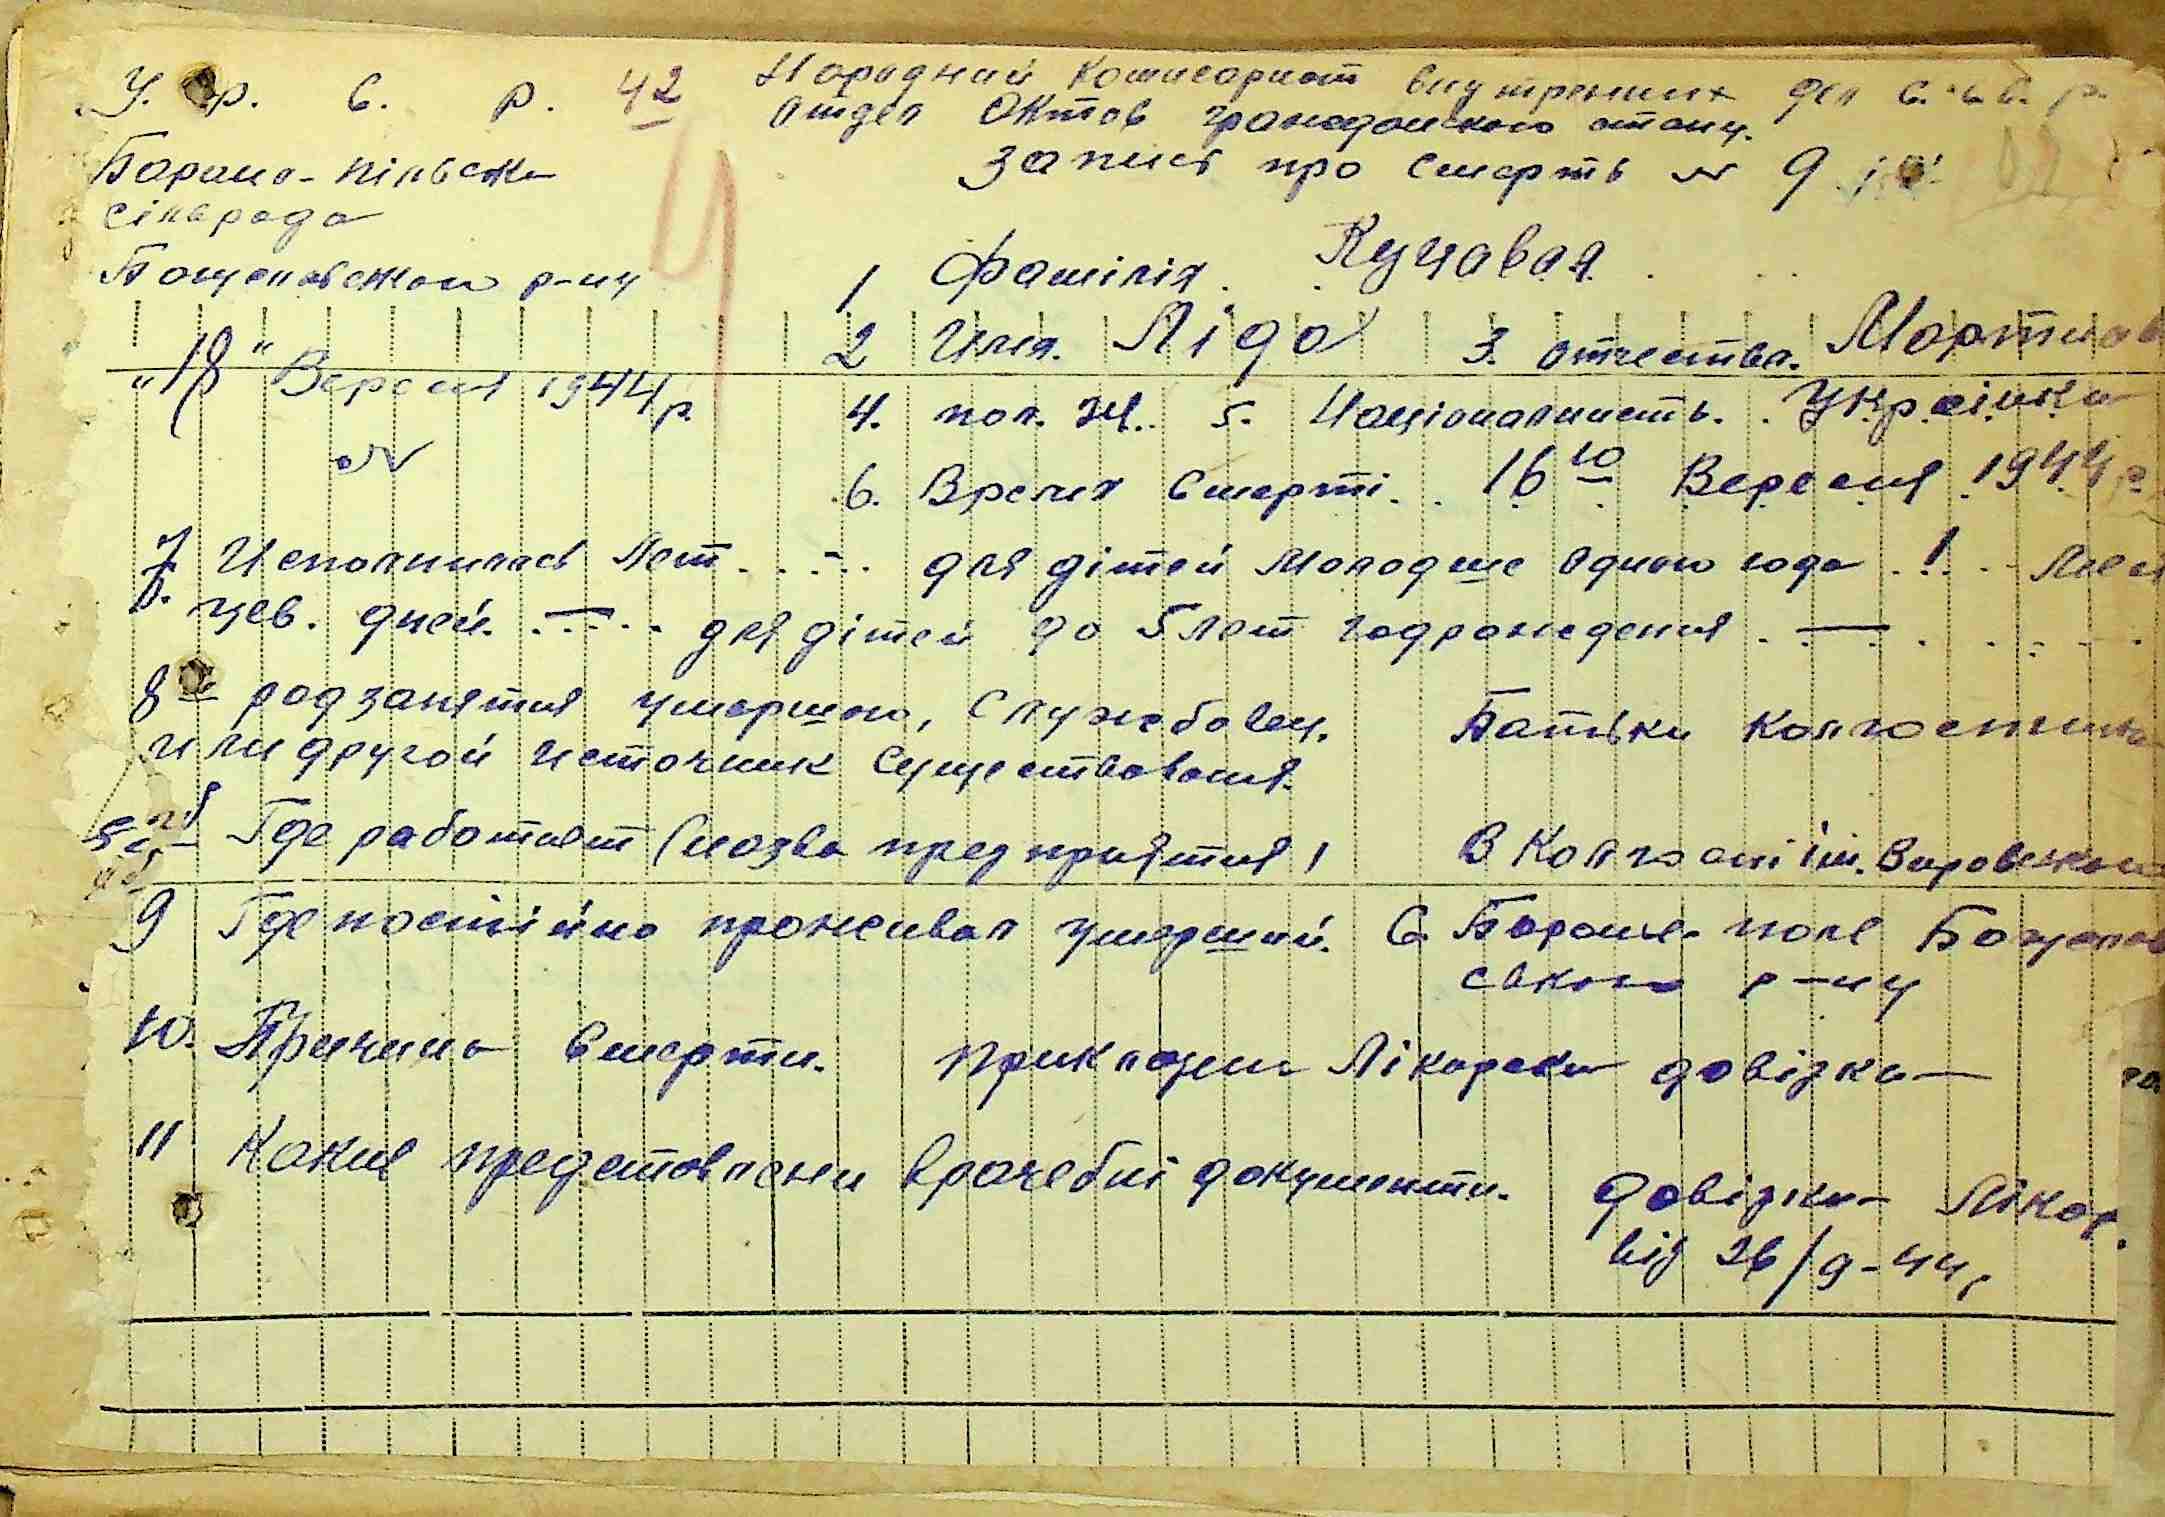 У. С. Р. Р. 42 Народний Комисариат внутренних дел С.С.С.Р.
Отдел Октов гражданского стану.
Барано-пільська Запись про Смерть № 9
сільрада
Бощановского р-ну 1 Фамілія. Куцавая
2 Имя. Ліда 3. отчество. Мартинов
"18" Вересня 1944р. 4. пол. Ж. 5. Націоналность. Українка
№ 6. Время Смерті. 16го Вересня 1944 р.
7 Исполнилось Лет. - для дітей молодше одного года. 1. Меся
цев. дней. — для дітей до 5 лет год рождения. —
8 а род занятия умершого, Службовец. Батьки Колгоспники
или другой источник существования.
б Где работает (назва предприятия) В Колгоспі ім.
9 Где постійно проживал умерший. С. Баранье-поле
ського р-ну
10. Причина Смерти. прикладена Лікарська довідка
11 Какие представлени врачебні документи. довідка Лікар.
від 26/9-44р